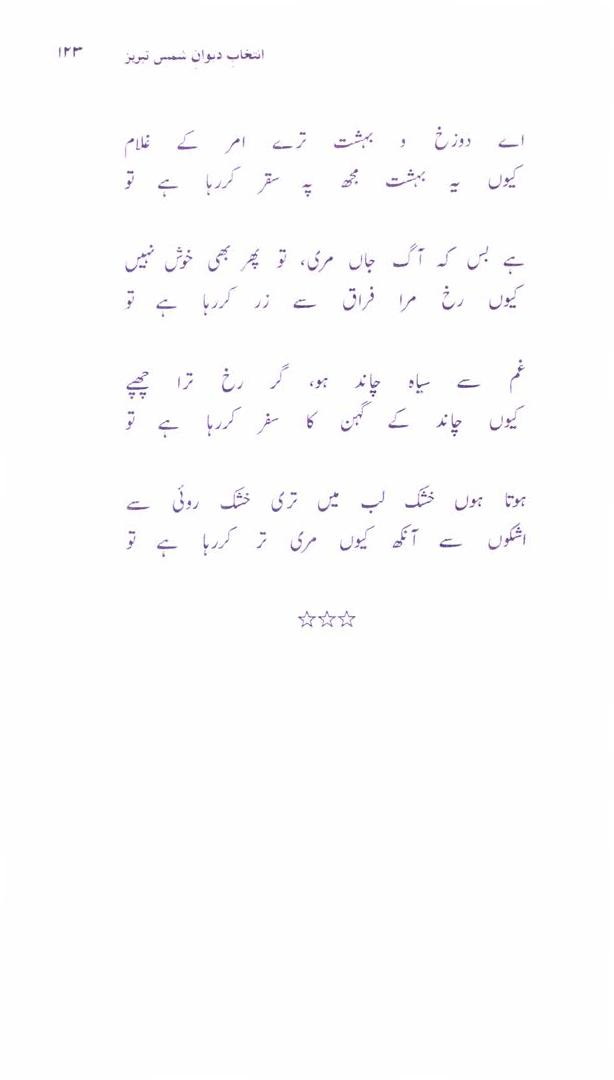 انتخاب دیوانِ شمس تبریز ۱۲۳
اے دوزخ و بہشت ترے امر کے غلام
کیوں یہ بہشت مجھ پہ سقر کررہا ہے تو
ہے بس کہ آگ جاں مری، تو پھر بھی خوش نہیں
کیوں رخ مرا فراق سے زر کررہا ہے تو
غم سے سیاہ چاند ہو، گر رخ ترا چھپے
کیوں چاند کے گہن کا سفر کررہا ہے تو
ہوتا ہوں خشک لب میں تری خشک روئی سے
اشکوں سے آنکھ کیوں مری تر کررہا ہے تو
☆☆☆